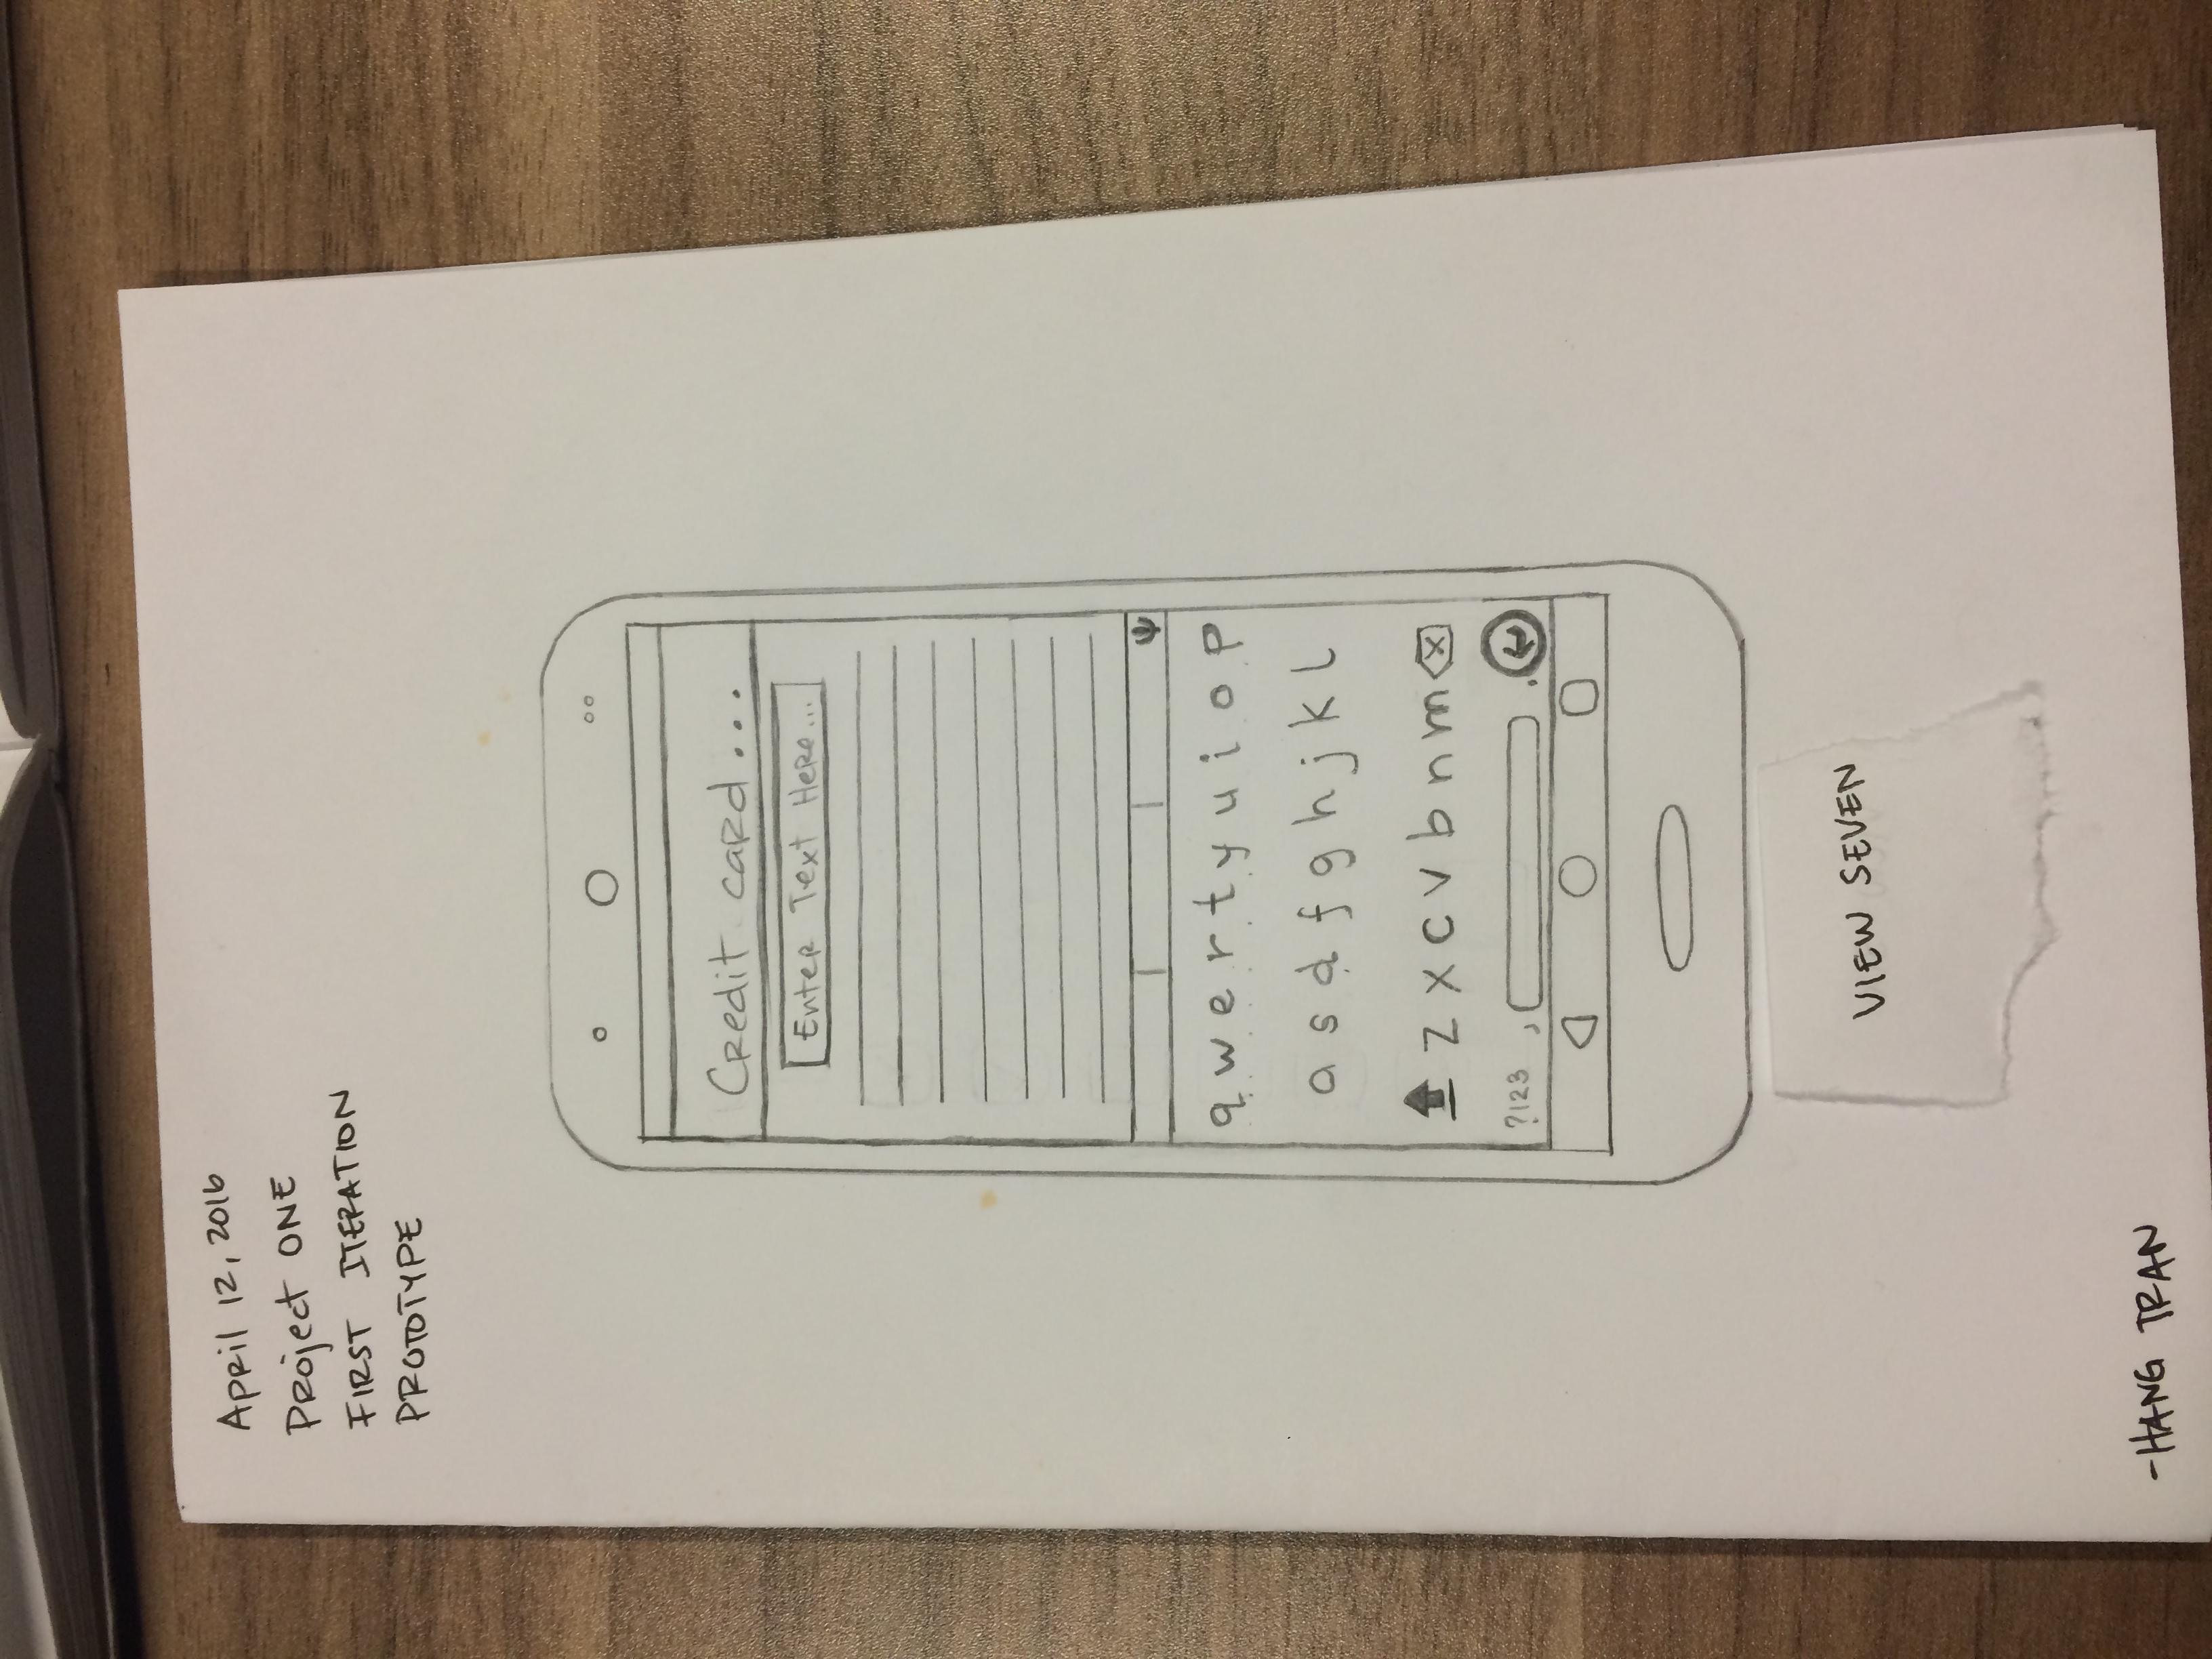 April 12, 2016
Project ONE
FIRST ITERATION
PROTOTYPE
Credit card...
Enter Text Here...
q w e r t y u i o p
a s d f g h j k l
z x c v b n m x
?123 , .
VIEW SEVEN
-HANG TRAN